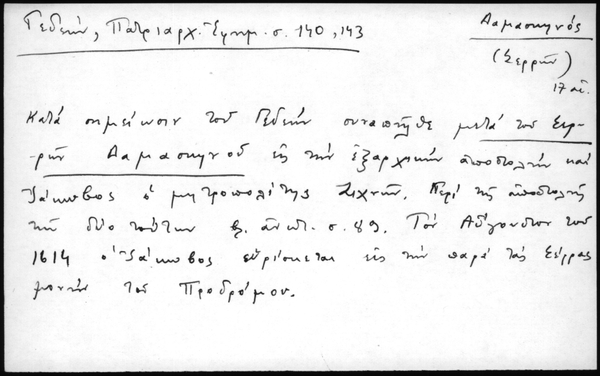 Γεδεών, Πατριαρχ. Ἐφημ. σ. 140, 143
Δαμασκηνός
(Σερρῶν)
17 αἰ.
Κατά σημείωσιν τοῦ Γεδεών συναπῆλθε μετά τοῦ Σερ-
ρῶν Δαμασκηνοῦ εἰς τήν ἐξαρχικήν ἀποστολήν καί
Ἰάκωβος ὁ μητροπολίτης Ζιχνῶν. Περί τῆς ἀποστολῆς
τῶν δύο τούτων β. ἀνωτ. σ. 89. Τόν Αὔγουστον τοῦ
1614 ὁ Ἰάκωβος εὑρίσκεται εἰς τήν παρά τάς Σέρρας
μονήν τοῦ Προδρόμου.